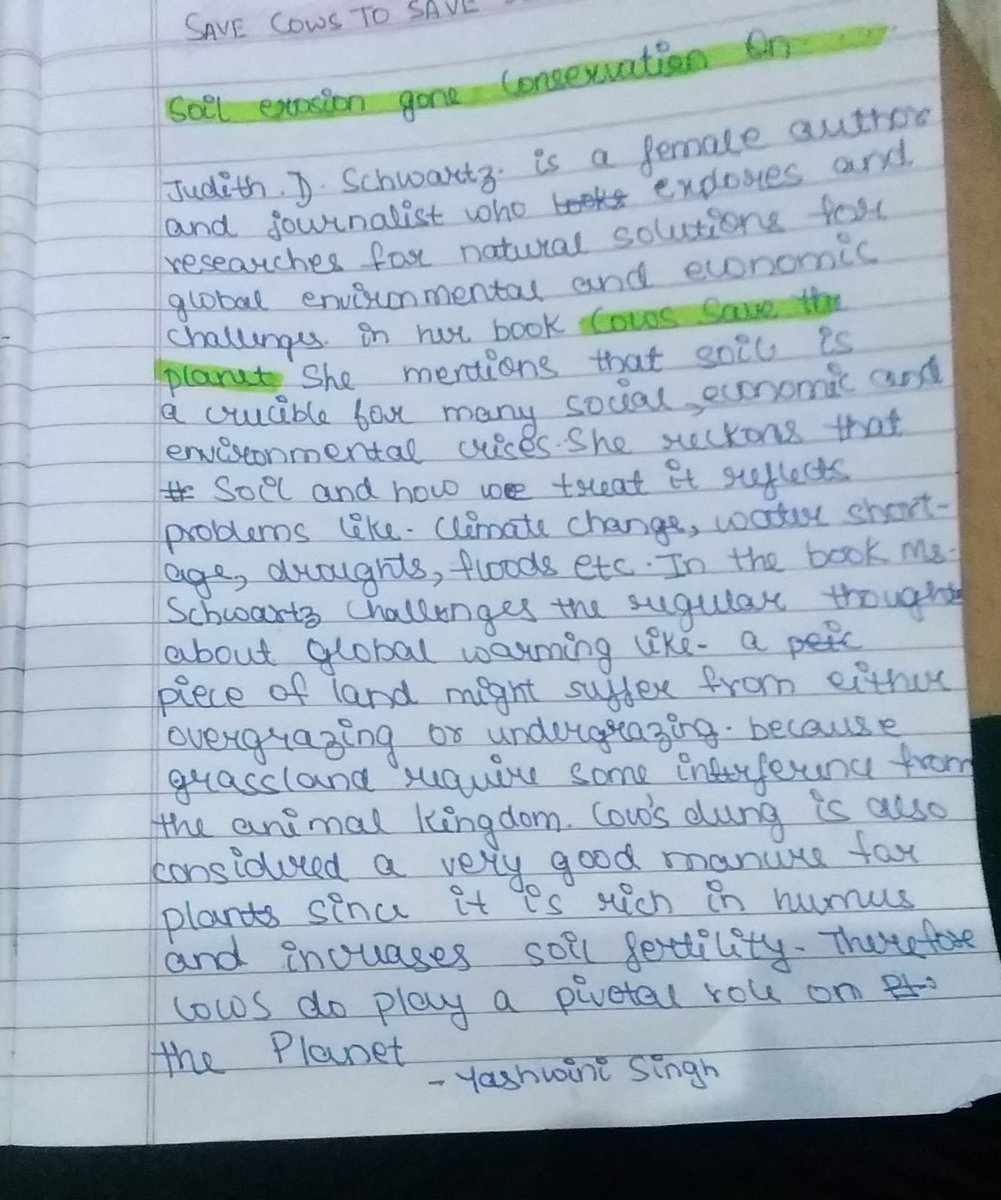 SAVE COWS TO SAVE
Soil erosion gone Conservation On
Judith. D. Schwartz. is a female author
and journalist who books exposes and
researches for natural solutions for
global environmental and economic
challenges. in her book Cows Save the
planet She mentions that soil is
a crucible for many social, economic and
environmental crises. She reckons that
# Soil and how we treat it reflects
problems like- Climate change, water short-
age, droughts, floods etc. In the book Ms.
Schwartz Challenges the regular thought
about global warming like- a peic
piece of land might suffer from either
overgrazing or undergrazing. because
grassland require some interference from
the animal kingdom. Cow's dung is also
considered a very good manure for
plants since it is rich in humus
and increases soil fertility. Therefore
cows do play a pivotal role on
the Planet
- Yashwini Singh